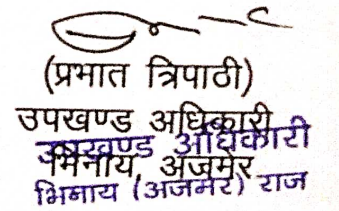 (प्रभात त्रिपाठी)
उपखण्ड अधिकारी
उपखण्ड अधिकारी
भिनाय, अजमेर
भिनाय (अजमेर) राज